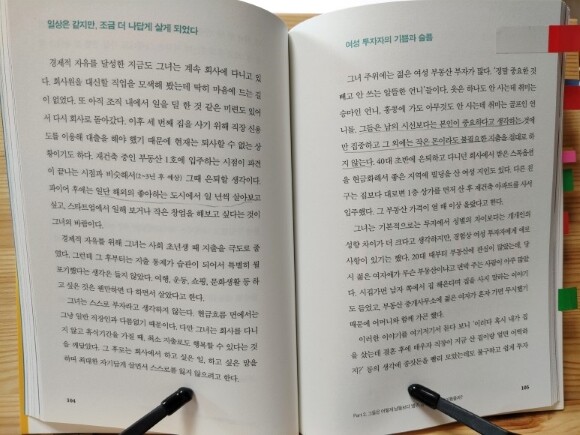 일상은 같지만, 조금 더 나답게 살게 되었다
경제적 자유를 달성한 지금도 그녀는 계속 회사에 다니고 있
다. 회사원을 대신할 직업을 모색해 봤는데 딱히 마음에 드는 길
이 없었다. 또 아직 조직 내에서 일을 덜 한 것 같은 미련도 있어
서 다시 회사로 돌아갔다. 이후 세 번째 집을 사기 위해 직장 신용
도를 이용해 대출을 해야 했기 때문에 현재는 퇴사할 수 없는 상
황이기도 하다. 재건축 중인 부동산 1호에 입주하는 시점이 파견
이 끝나는 시점과 비슷해서(2~3년 후 예상) 그때 은퇴할 생각이다.
파이어 후에는 일단 해외의 좋아하는 도시에서 일 년씩 살아보고
싶고, 스타트업에서 일해 보거나 작은 창업을 해보고 싶다는 것이
그녀의 바람이다.
경제적 자유를 위해 그녀는 사회 초년생 때 지출을 극도로 줄
였다. 그런데 그 후부터는 지출 통제가 습관이 되어서 특별히 뭘
포기했다는 생각은 들지 않았다. 여행, 운동, 쇼핑, 문화생활 등 하
고 싶은 것은 웬만하면 다 하면서 살았다고 한다.
그녀는 스스로 부자라고 생각하지 않는다. 현금흐름 면에서는
그냥 일반 직장인과 다름없기 때문이다. 다만 그녀는 회사를 다니
지 않고 휴식기간을 가질 때, 최소 지출로도 행복할 수 있다는 것
을 깨달았다. 그 후로는 회사에서 하고 싶은 일, 하고 싶은 말을
하며 최대한 자기답게 살면서 스스로를 잃지 않으려고 한다.
104
여성 투자자의 기쁨과 슬픔
그녀 주위에는 젊은 여성 부동산 부자가 많다. '정말 중요한 것
빼고 안 쓰는 알뜰한 언니'들이다. 옷은 하나도 안 사는데 취미는
승마인 언니, 홍콩에 가도 아무것도 안 사는데 취미는 골프인 언
니들. 그들은 남의 시선보다는 본인이 중요하다고 생각하는 것에
만 집중하고 그 외에는 작은 돈이라도 불필요한 지출을 절대로 하
지 않는다. 40대 초반에 은퇴하고 다니던 회사에서 받은 스톡옵션
을 현금화해서 좋은 지역에 빌딩을 산 여성 지인도 있다. 다른 친
구는 집보다 대로변 1층 상가를 먼저 산 후 재건축 아파트를 사서
입주했다. 그 부동산 가격이 열 배 이상 올랐다고 한다.
그녀는 기본적으로는 투자에서 성별의 차이보다는 개개인의
성향 차이가 더 크다고 생각하지만, 경험상 여성 투자자에게 애로
사항이 있기는 했다. 20대 때부터 부동산에 관심이 많았는데, 당
시 젊은 여자애가 무슨 부동산이냐고 면박 주는 사람이 아주 많았
다. 시집가면 남자 쪽에서 집 해온다며 집을 사지 말라는 이야기
도 들었고, 부동산 중개사무소에 젊은 여자가 혼자 가면 무시했기
때문에 어머니와 함께 가곤 했다.
이러한 이야기를 여기저기서 듣다 보니 '이러다 혹시 내가 집
을 샀는데 결혼 후에 배우자 직장이 지금 산 집이랑 멀면 어떡하
지?' 등의 생각에 종잣돈을 빨리 모았는데도 불구하고 쉽게 투자
105